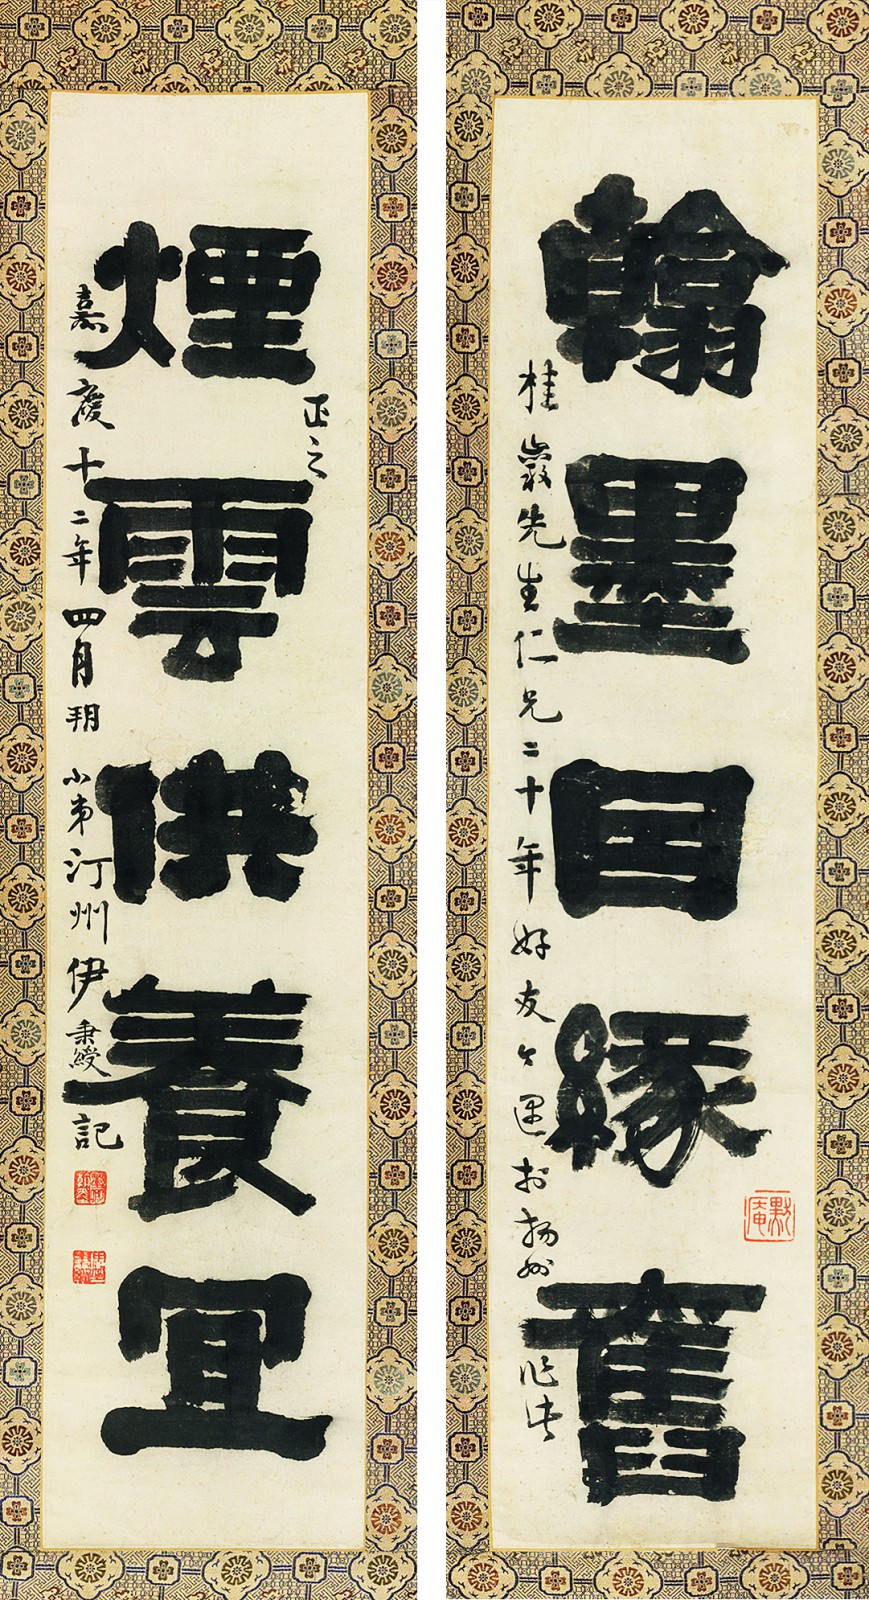 翰墨因緣舊
桂巖先生仁兄二十年好友今遇於揚州作此
默庵
煙雲供養宜
正之
嘉慶十二年四月朔小弟汀州伊秉綬記